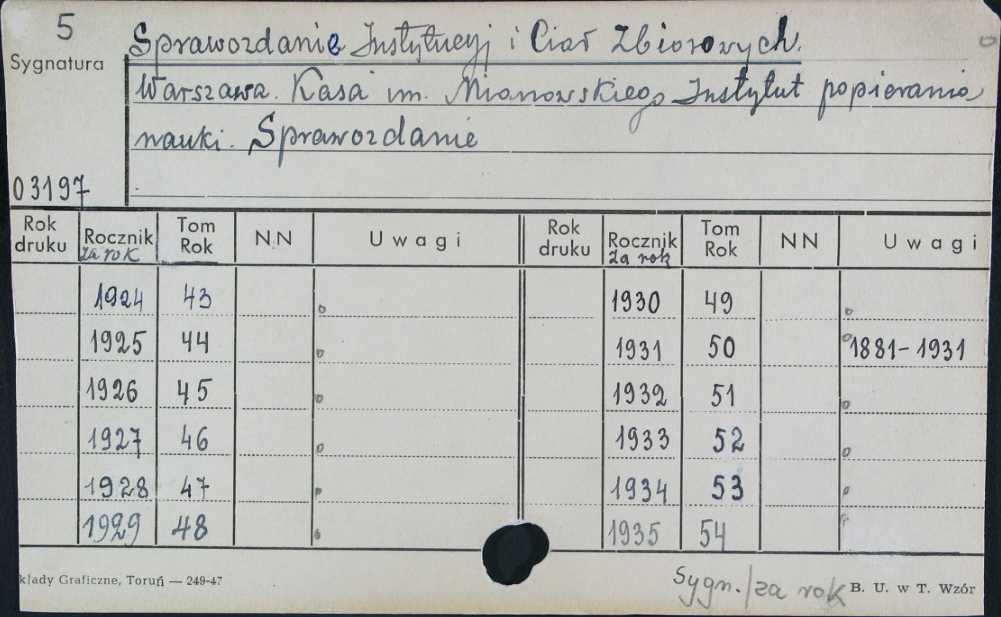 5
Sygnatura
03197
Sprawozdanie Instytucyj i Ciał Zbiorowych.
Warszawa. Kasa im. Mianowskiego Instytut popierania
nauki. Sprawozdanie
Rok druku | Rocznik za rok | Tom Rok | NN | Uwagi | Rok druku | Rocznik za rok | Tom Rok | NN | Uwagi
1924 43 1930 49
1925 44 1931 50 1881-1931
1926 45 1932 51
1927 46 1933 52
1928 47 1934 53
1929 48 1935 54
kłady Graficzne, Toruń — 249-47
Sygn./za rok
B. U. w T. Wzór